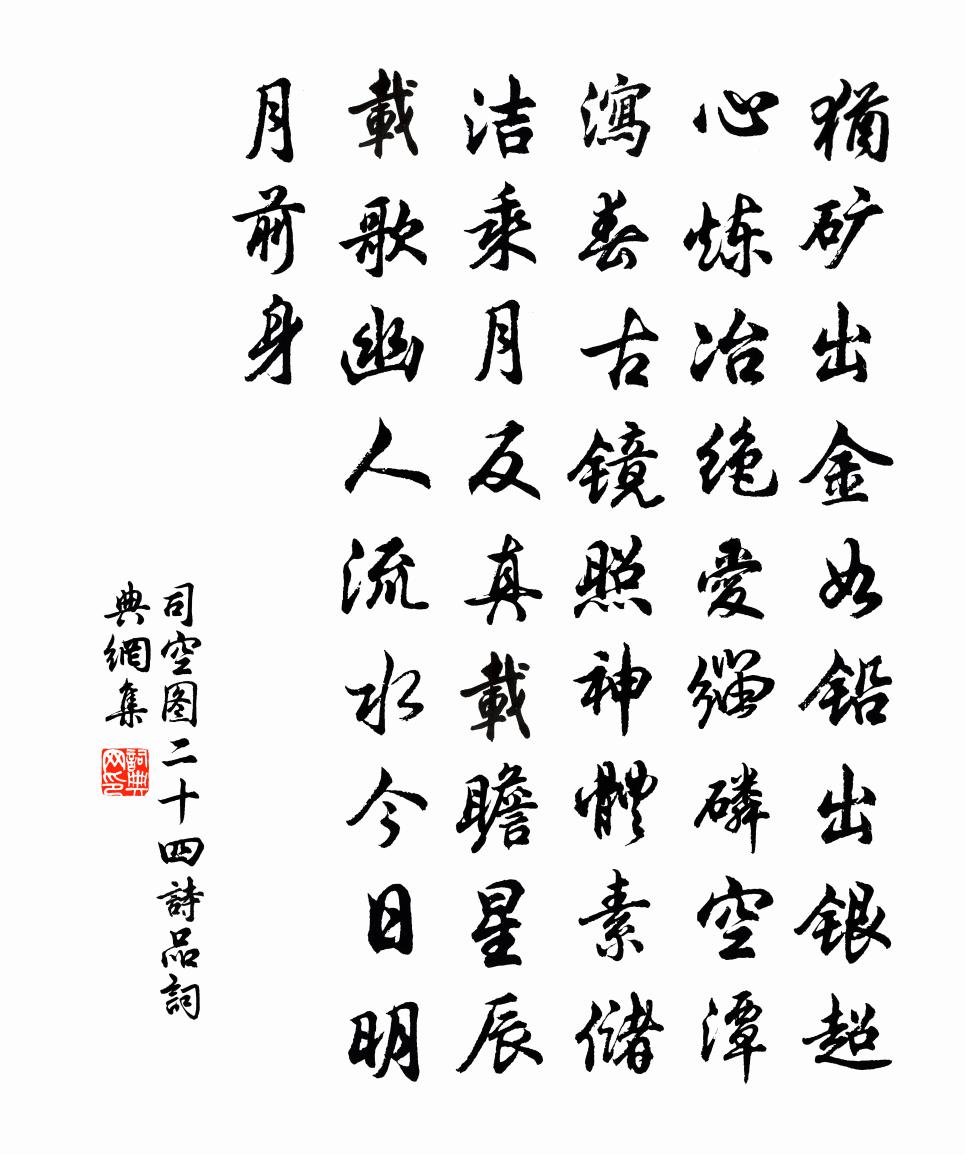 猶矿出金如铅出银超
心炼冶绝愛缁磷空潭
瀉春古镜照神體素储
洁乘月反真載瞻星辰
載歌幽人流水今日明
月前身
司空图二十四詩品詞
典網集
詞典网印